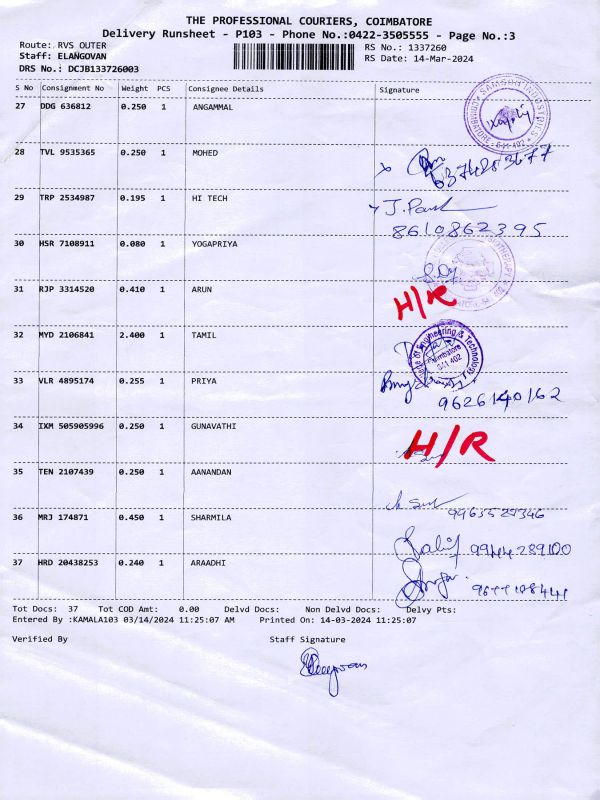 THE PROFESSIONAL COURIERS, COIMBATORE
Delivery Runsheet - P103 - Phone No.:0422-3505555 - Page No.:3
Route: RVS OUTER
RS No.: 1337260
Staff: ELANGOVAN
RS Date: 14-Mar-2024
DRS No.: DCJB133726003
S No Consignment No Weight PCS Consignee Details Signature
27 DDG 636812 0.250 1 ANGAMMAL
SAMSON INDUSTRIES
28 TVL 9535365 0.250 1 MOHED
29 TRP 2534987 0.195 1 HI TECH
8610862395
30 HSR 7108911 0.080 1 YOGAPRIYA
31 RJP 3314520 0.410 1 ARUN
H/R
32 MYD 2106841 2.400 1 TAMIL
of Engineering & Technology
Coimbatore
641 402
33 VLR 4895174 0.255 1 PRIYA
9626140162
34 IXM 505905996 0.250 1 GUNAVATHI
H/R
35 TEN 2107439 0.250 1 AANANDAN
36 MRJ 174871 0.450 1 SHARMILA
9944289100
37 HRD 20438253 0.240 1 ARAADHI
Tot Docs: 37 Tot COD Amt: 0.00 Delvd Docs: Non Delvd Docs: Delvy Pts:
Entered By :KAMALA103 03/14/2024 11:25:07 AM Printed On: 14-03-2024 11:25:07
Verified By Staff Signature